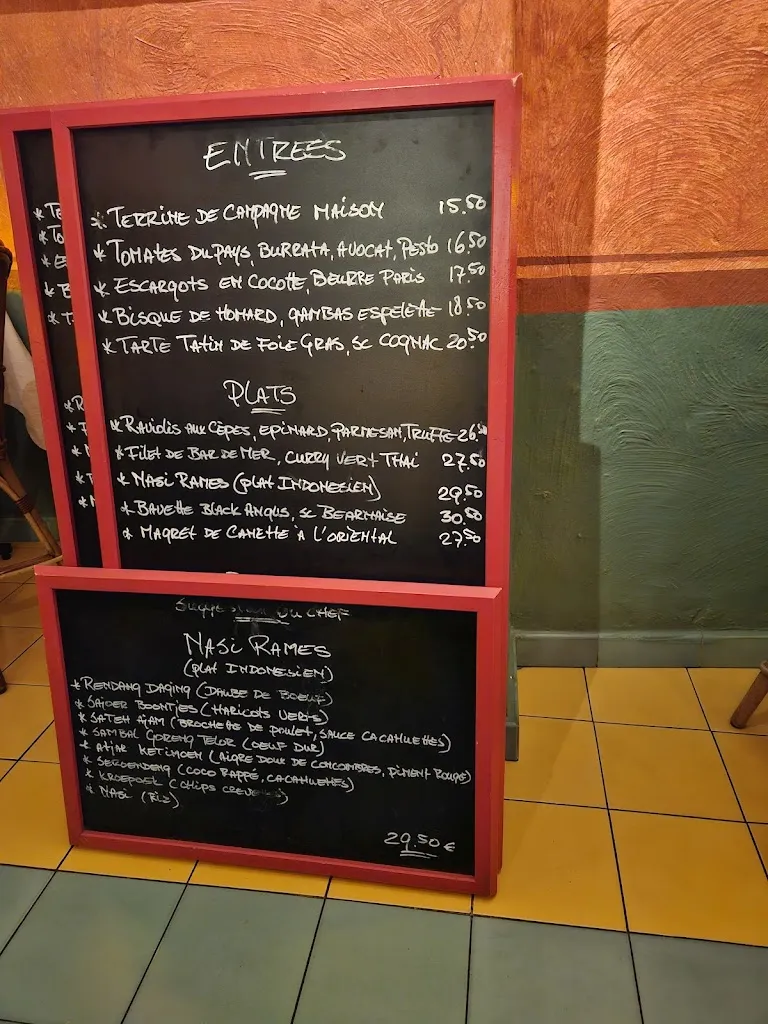 ENTREES
* TERRINE DE CAMPAGNE MAISON 15.50
* TOMATES DU PAYS, BURRATA, AVOCAT, PESTO 16.50
* ESCARGOTS EN COCOTTE, BEURRE PARIS 17.50
* BISQUE DE HOMARD, GAMBAS ESPELETTE 18.50
* TARTE TATIN DE FOIE GRAS, SC COGNAC 20.50
PLATS
* RAVIOLIS AUX CÈPES, EPINARD, PARMESAN, TRUFFE 26.50
* FILET DE BAR DE MER, CURRY VERT THAI 27.50
* NASI RAMES (PLAT INDONESIEN) 29.50
* BAVETTE BLACK ANGUS, SC BEARNAISE 30.50
* MAGRET DE CANETTE À L'ORIENTAL 27.50
SUGGESTION DU CHEF
NASI RAMES
(PLAT INDONESIEN)
* RENDANG DAGING (DAUBE DE BOEUF)
* SAJOER BOONTJES (HARICOTS VERTS)
* SATEH AJAM (BROCHETTE DE POULET, SAUCE CACAHUETTES)
* SAMBAL GORENG TELOR (OEUF DUR)
* ATJAR KETIMOEN (AIGRE DOUX DE CONCOMBRES, PIMENT ROUGE)
* SEROENDENG (COCO RAPPÉ, CACAHUETTES)
* KROEPOEK (CHIPS
* NASI (RIS)
29.50 €